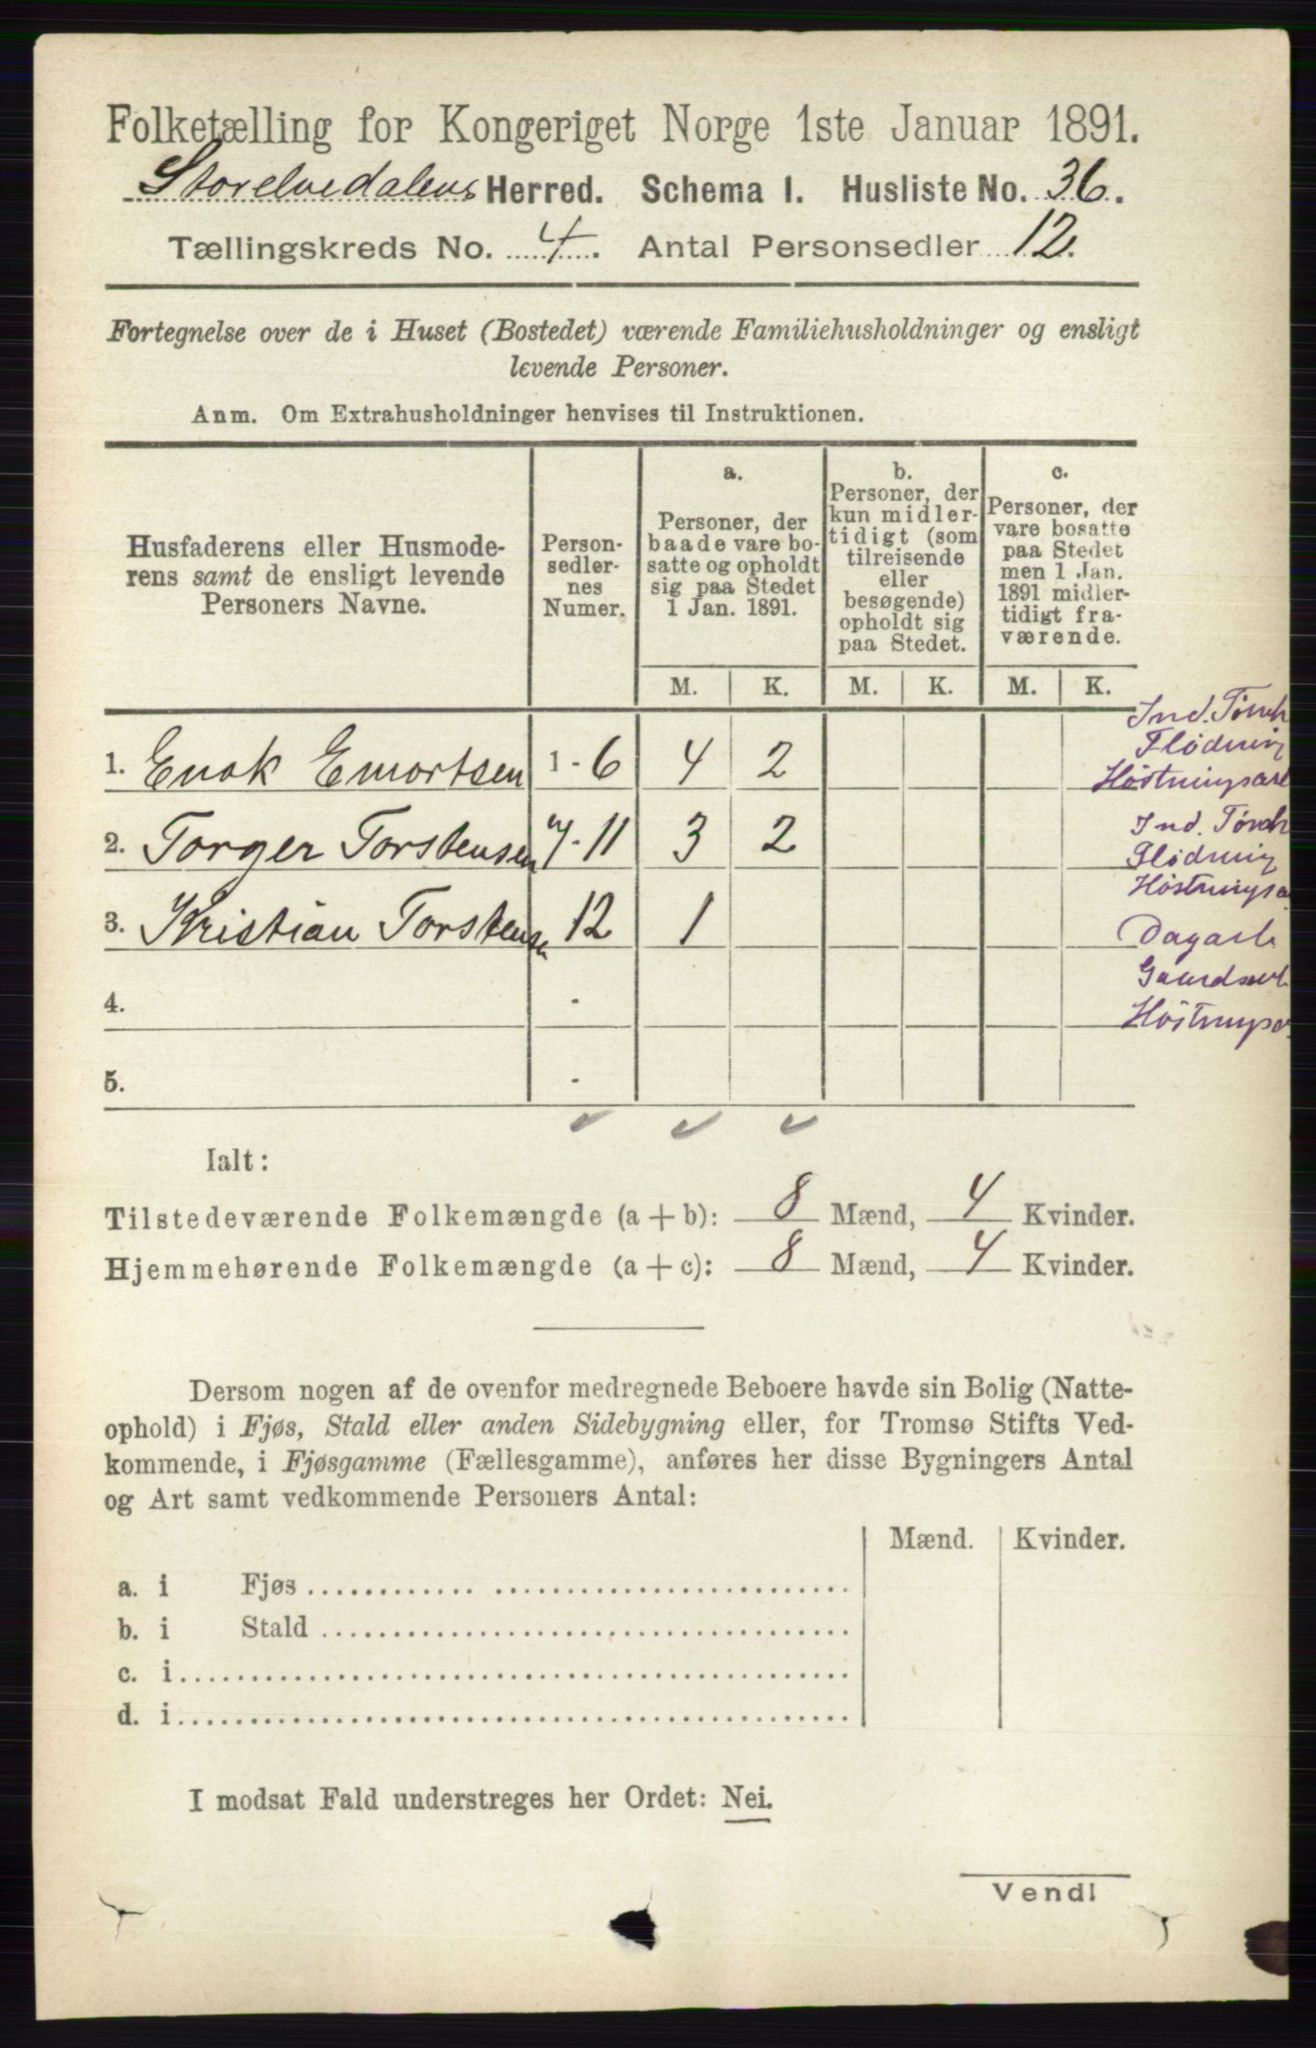 Folketælling for Kongeriget Norge 1ste Januar 1891.
Storelvedalens Herred. Schema I. Husliste No. 36.
Tællingskreds No. 4. Antal Personsedler 12.
Fortegnelse over de i Huset (Bostedet) værende Familiehusholdninger og ensligt
levende Personer.
Anm. Om Extrahusholdninger henvises til Instruktionen.
Husfaderens eller Husmode-
rens samt de ensligt levende
Personers Navne.
Person-
sedler-
nes
Numer.
a.
Personer, der
baade vare bo-
satte og opholdt
sig paa Stedet
1 Jan. 1891.
b.
Personer, der
kun midler-
tidigt (som
tilreisende
eller
besøgende)
opholdt sig
paa Stedet.
c.
Personer, der
vare bosatte
paa Stedet
men 1 Jan.
1891 midler-
tidigt fra-
værende.
M. K. M. K. M. K.
1. Enok Emortsen 1-6 4 2
Ind.
Flødning
2. Torger Torstensen 7-11 3 2
Ind.
Flødning
3. Kristian Torstensen 12 1
Dagarb
4. -
5. -
Ialt:
Tilstedeværende Folkemængde (a + b): 8 Mænd, 4 Kvinder.
Hjemmehørende Folkemængde (a + c): 8 Mænd, 4 Kvinder.
Dersom nogen af de ovenfor medregnede Beboere havde sin Bolig (Natte-
ophold) i Fjøs, Stald eller anden Sidebygning eller, for Tromsø Stifts Ved-
kommende, i Fjøsgamme (Fællesgamme), anføres her disse Bygningers Antal
og Art samt vedkommende Personers Antal:
Mænd. Kvinder.
a. i Fjøs
b. i Stald
c. i
d. i
I modsat Fald understreges her Ordet: Nei.
Vend!